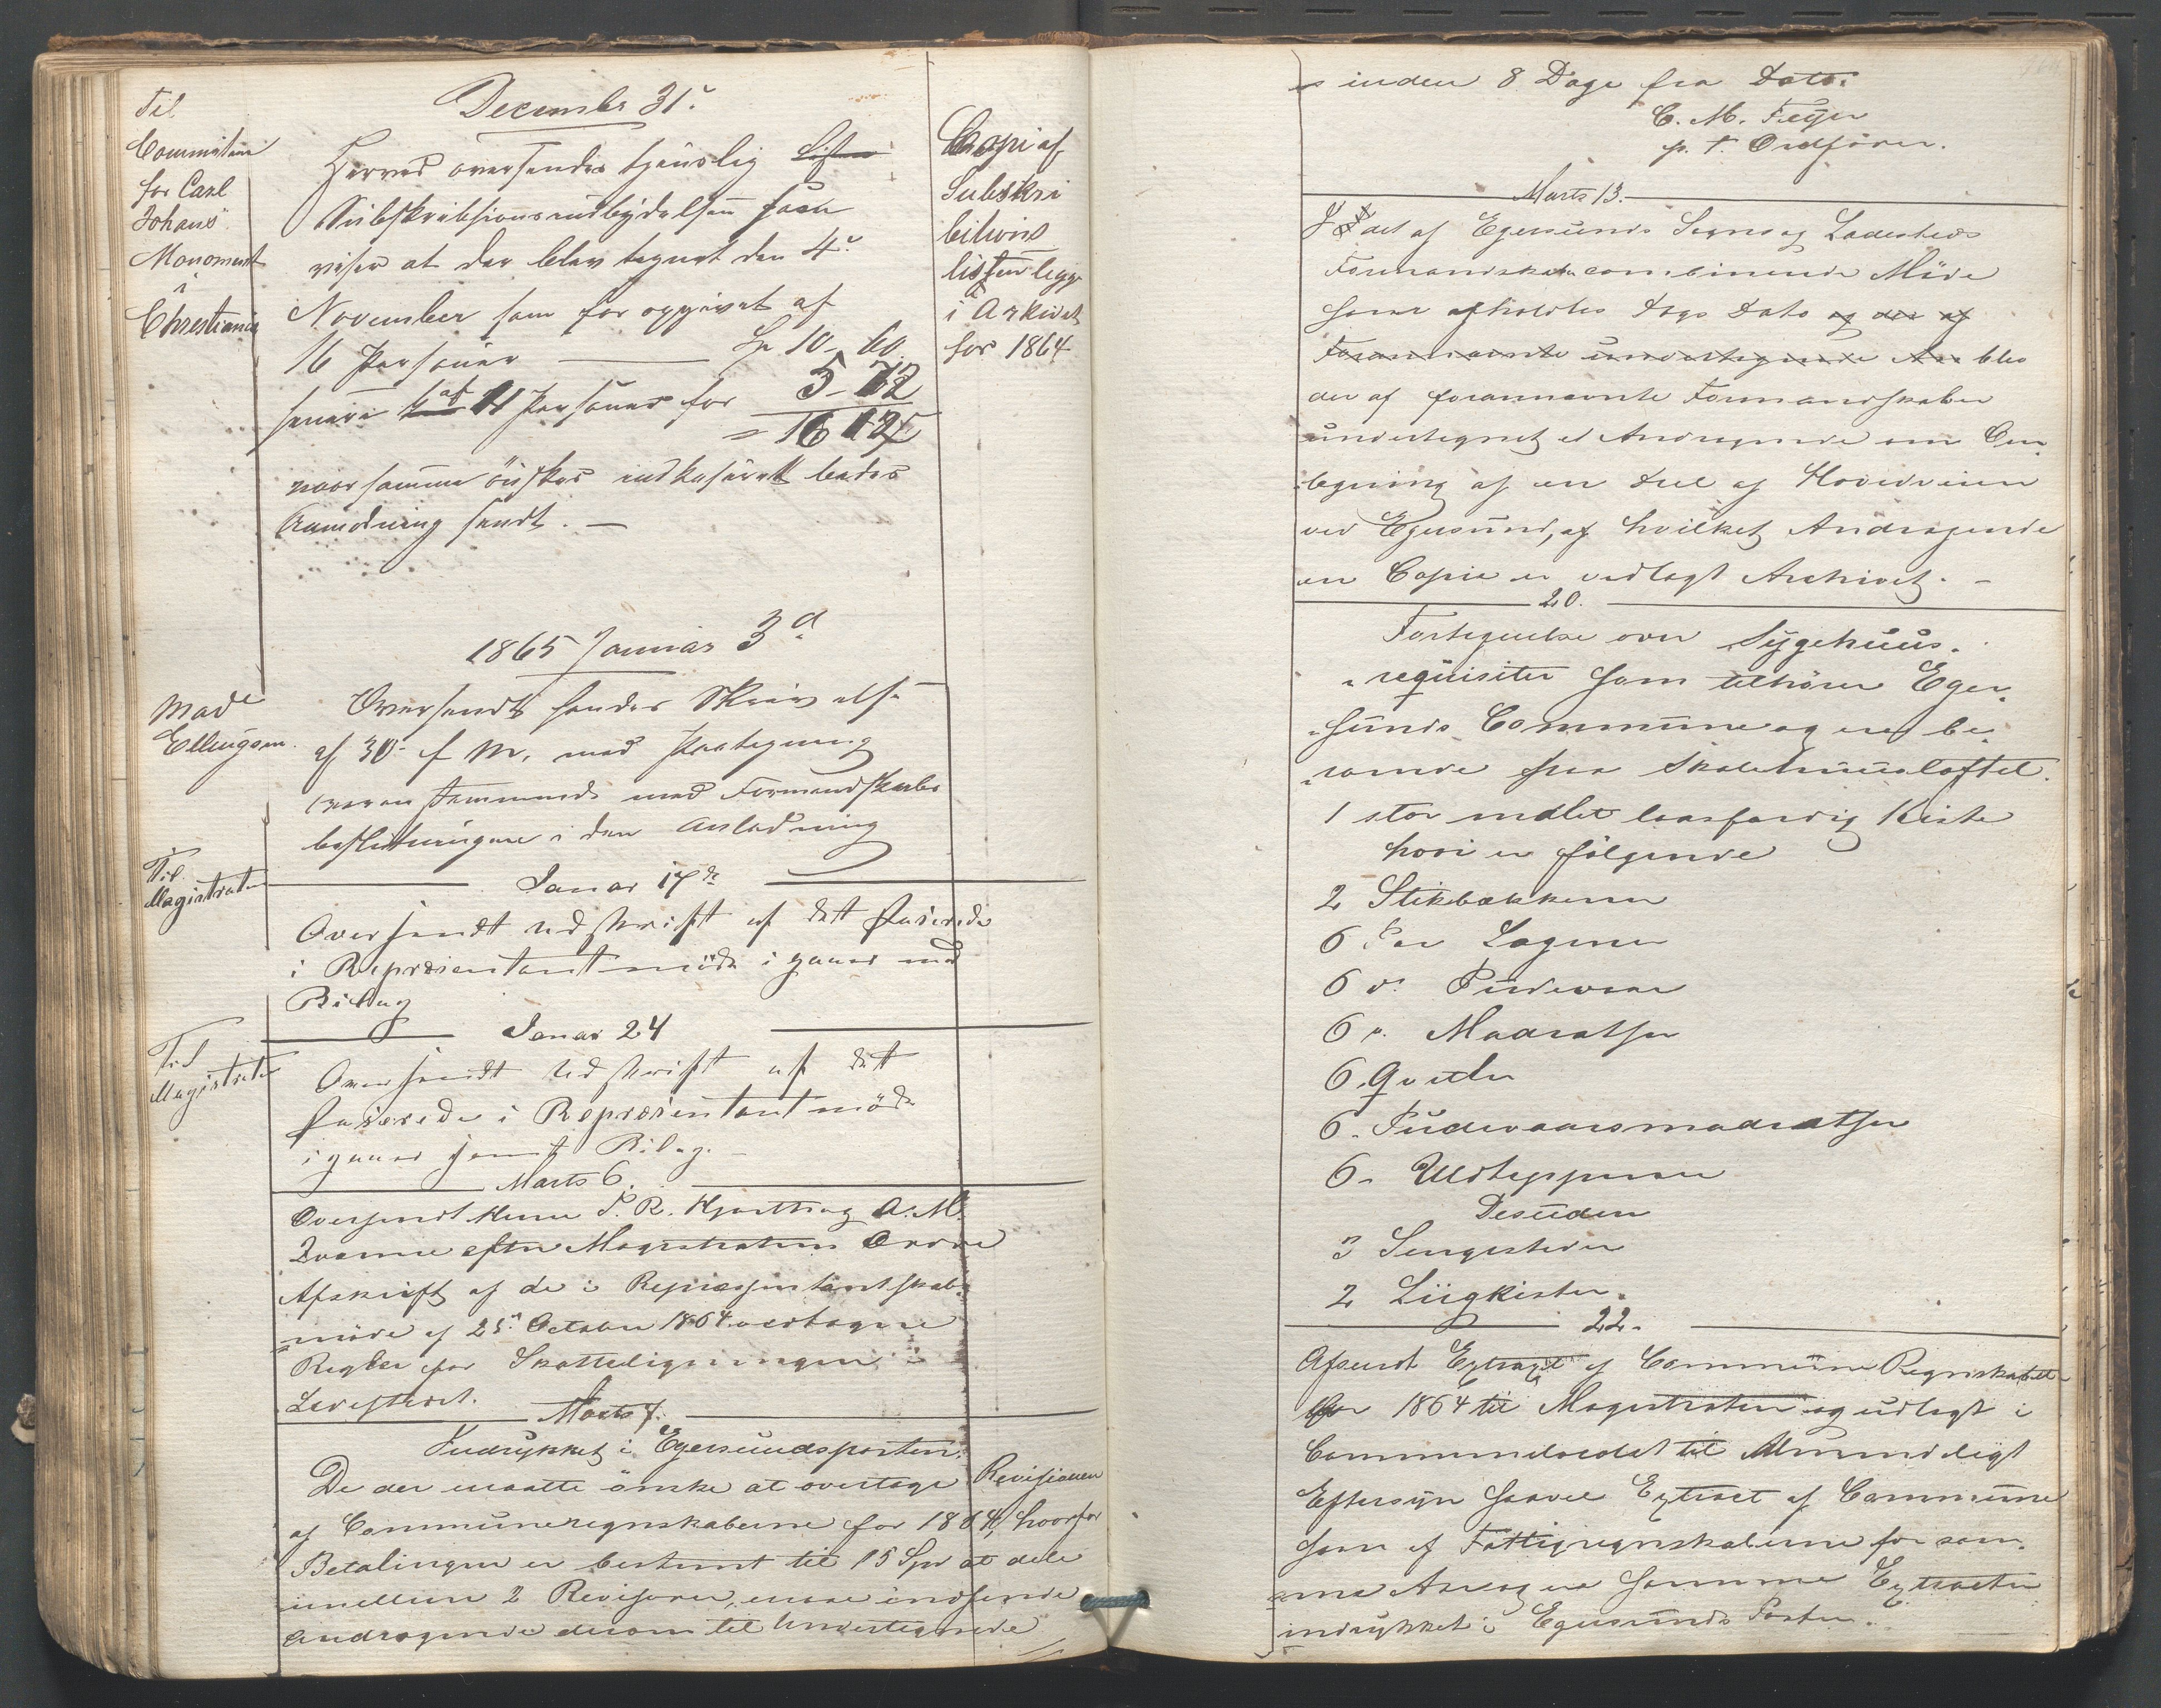 Til
Commiteen
for Carl
Johans
Monoment
i
Christiania
Decembr 31.
Herved oversendes tjenslig Listen
Subskribsionsindbydelsen som
viser at der blev tegnet den 4.
November som for opgivet af
16 Personer — Sp 10 - 60
senere af 11 Personer for 5 - 72
= 16 12
naar samme önskes indkaseret bedes
Anmodning sendt. —
Copi af
Subskri
bitions
listen legge
i Arkivet
for 1864
1865 Januar 3d
Mad
Ellingsen.
Oversendt hendes Skrivelse
af 30 f M. med Paategning
overenstemmende med Formandskabs
beslutningen i den Anledning
Til
Magistraten
Januar 17de
Oversendt Udskrift af det Passerede
i Repræsentantmöde i gaar med
Bilag
Til
Magistraten
Januar 24
Oversendt Udskrift af det
Passerede i Repræsentantmöde
i gaar samt Bilag. —
Marts 6.
Oversendt Herr P. R. Hjortting A. M.
efter Magistratens Ordre
Afskrift af de i Repræsentantskab-
möde af 25. October 1864 vedtagne
Regler for Skatteligningen i
Ladestedet.
Marts 7.
Indrykket i Egersundsposten:
De der maatte önske at overtage Revisionen
af Communeregnskaberne for 1864, hvorfor
Betalingen er bestemt til 15 Spd at dele
imellem 2 Revisorer, maa indsende
Andragende derom til Undertegnede
inden 8 Dage fra Dato.
C. M. Feyer
p. t. Ordförer.
Marts 13.
I det af Egersunds Sogns og Ladesteds
Formandskaber combinerede Möde
som afholdtes Dags Dato og der af
Forannævnte undertegnede blev
der af forannævnte Formandskaber
undertegnet et Andragende om Om-
lægning af en Deel af Hovedveien
ved Egersund, af hvilket Andragende
en Copie er vedlagt Archivet. —
20.
Fortegnelse over Sygehuus-
requisiter som tilhörer Eger-
sunds Commune og ere be-
roende paa Skolehuusloftet.
1 stor malet laasfærdig Kiste
hvori er fölgende
2 Stikbækkener
6 Par Lagener
6 do Pudevaar
6 do Madratser
6 Qvilter
6 Pudevaarsmadratser
6 Uldtepper
Desuden
3 Sengesteder
2 Liigkister.
22.
Afsendt Extract af Commune Regnskabet
for 1864 til Magistraten og udlagt i
Communelocalet til Almindeligt
Eftersyn saavel Extract af Commune
som af Fattigregnskaberne for sam-
me Aar og er samme Extracter
indrykket i Egersunds Posten.